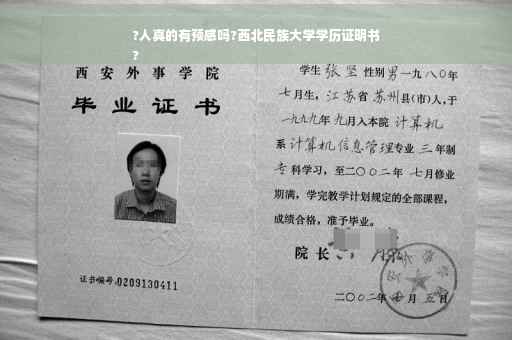 ?人真的有预感吗?西北民族大学学历证明书
?
西安外事学院
毕业证书
证书编号:0209130411
学生 张坚 性别 男 一九八〇年
七月生, 江苏省 苏州县(市)人,于
一九九九年 九月入本院 计算机
系 计算机信息管理专业 三 年制
专 科学习, 至二〇〇二年 七月修业
期满, 学完教学计划规定的全部课程,
成绩合格, 准予毕业。
院长
二〇〇二年 七月 五日